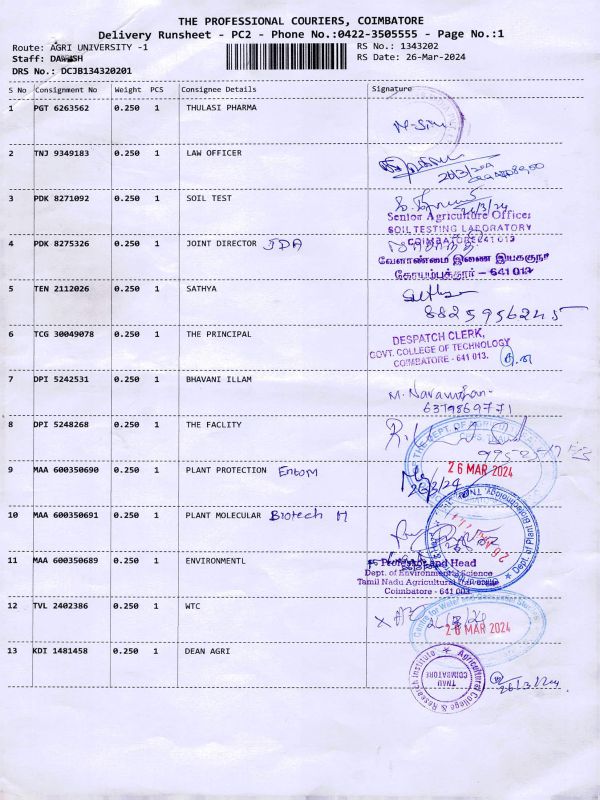 THE PROFESSIONAL COURIERS, COIMBATORE
Delivery Runsheet - PC2 - Phone No.:0422-3505555 - Page No.:1
Route: AGRI UNIVERSITY -1 RS No.: 1343202
Staff: RS Date: 26-Mar-2024
DRS No.: DCJB134320201
S No Consignment No Weight PCS Consignee Details Signature
1 PGT 6263562 0.250 1 THULASI PHARMA
2 TNJ 9349183 0.250 1 LAW OFFICER
3 PDK 8271092 0.250 1 SOIL TEST
Senior Agriculture Officer
SOIL TESTING LABORATORY
COIMBATORE 641 013
4 PDK 8275326 0.250 1 JOINT DIRECTOR JDA
வேளாண்மை இணை இயக்குநர்
கோயம்புத்தூர் - 641 013
5 TEN 2112026 0.250 1 SATHYA
8825956245
6 TCG 30049078 0.250 1 THE PRINCIPAL
DESPATCH CLERK,
GOVT. COLLEGE OF TECHNOLOGY
COIMBATORE - 641 013.
7 DPI 5242531 0.250 1 BHAVANI ILLAM
6379869771
8 DPI 5248268 0.250 1 THE FACLITY
26 MAR 2024
9 MAA 600350690 0.250 1 PLANT PROTECTION Entom
26/3/24
10 MAA 600350691 0.250 1 PLANT MOLECULAR Biotech
Dept. of Plant Biotechnology, TNAU
11 MAA 600350689 0.250 1 ENVIRONMENTL
Professor and Head
Dept. of Environmental Science
Tamil Nadu Agricultural University
Coimbatore - 641 003
12 TVL 2402386 0.250 1 WTC
26 MAR 2024
13 KDI 1481458 0.250 1 DEAN AGRI
Agricultural College & Research Institute
TNAU
COIMBATORE